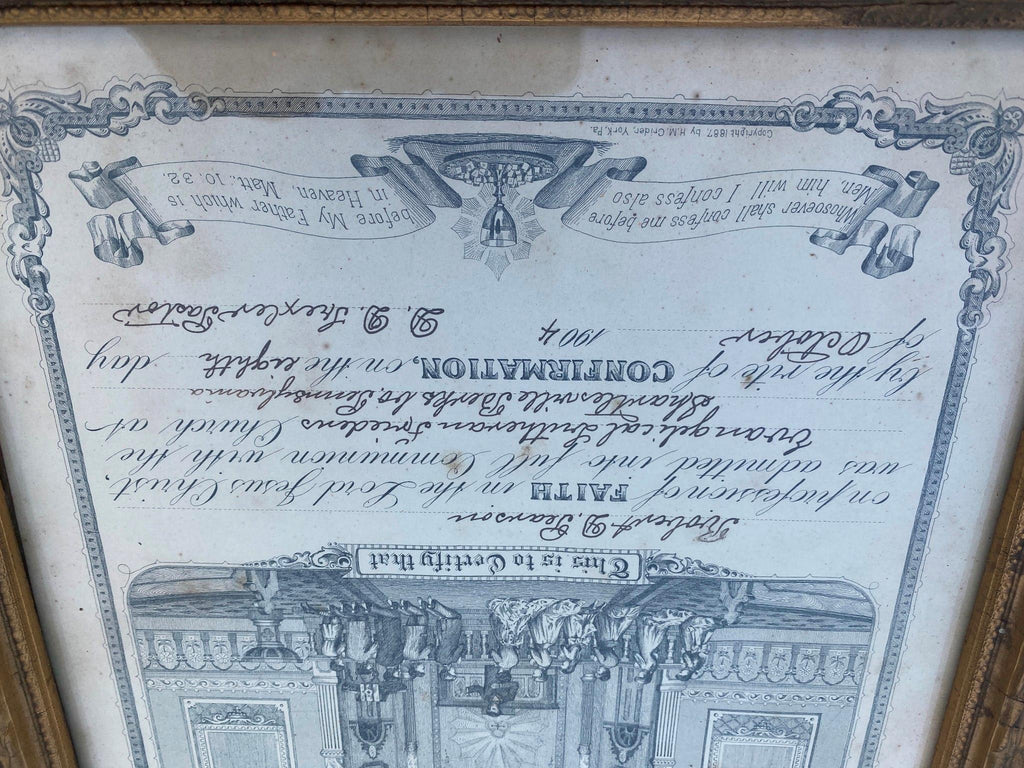 This is to Certify that
Robert D. Pearson
on profession of FAITH in the Lord Jesus Christ,
was admitted into full Communion with the
Evangelical Lutheran Friedens Church at
Shartlesville Berks Co. Pennsylvania
by the rite of CONFIRMATION, on the eighth day
of October 1904
D. D. Trexler Pastor
Whosoever shall confess me before
Men, him will I confess also
before My Father which is
in Heaven. Matt. 10:32.
Copyright 1887, by H.M. Crider, York, Pa.